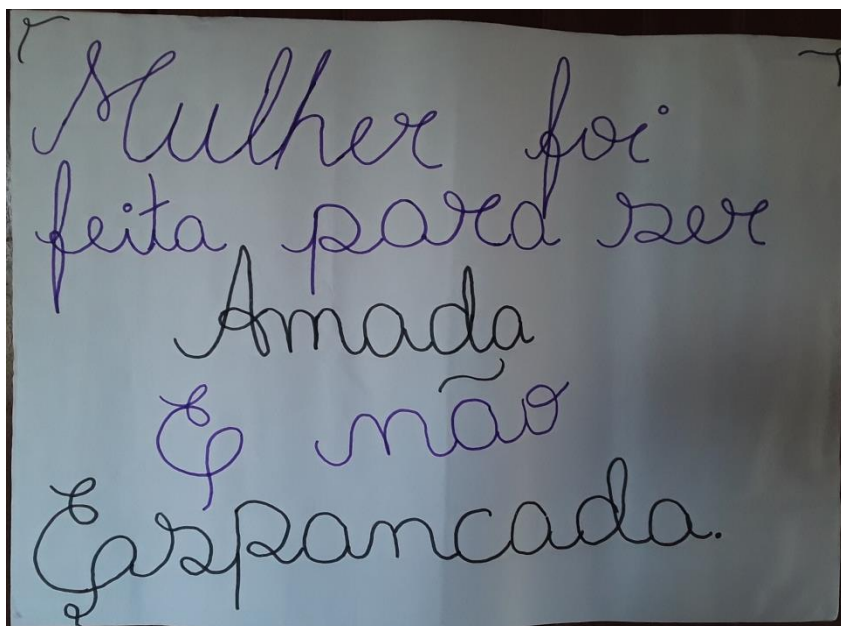 Mulher foi
feita para ser
Amada
E não
Espancada.